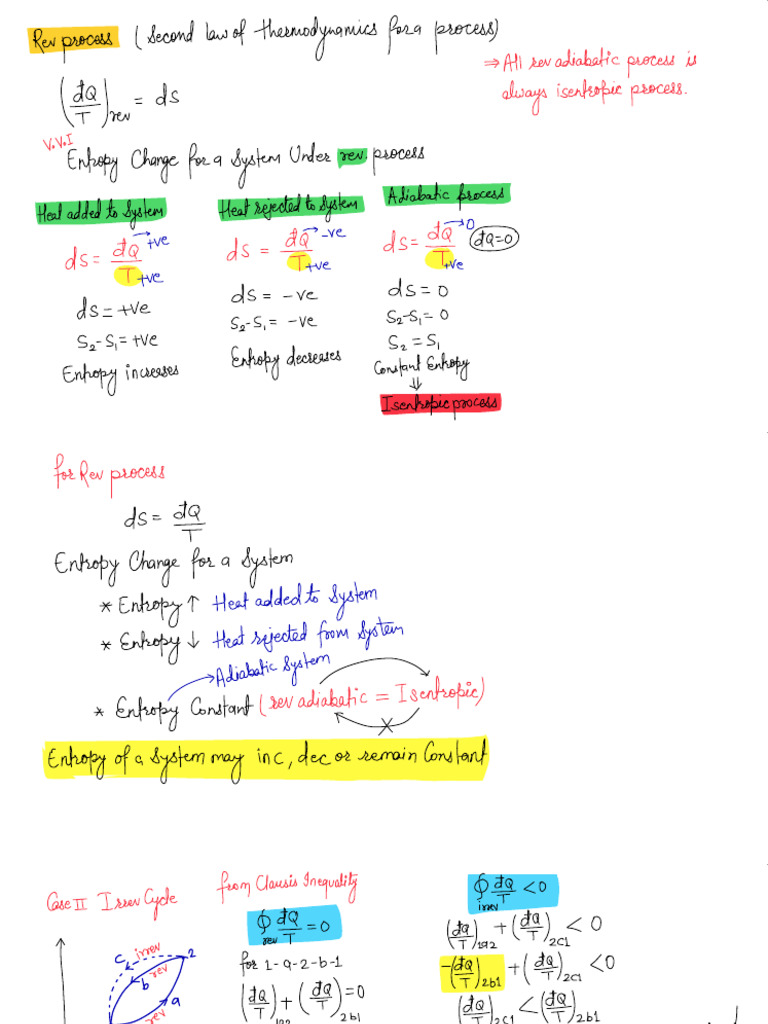 Rev process (Second law of thermodynamics for a process)
⇒ All rev adiabatic process is
always isentropic process.
(đQ/T)rev = ds
V.V.I
Entropy Change for a System Under rev. process
Heat added to System
ds = đQ/T → +ve
+ve
ds = +ve
S₂-S₁ = +ve
Entropy increases
Heat rejected to System
ds = đQ/T → -ve
+ve
ds = -ve
S₂-S₁ = -ve
Entropy decreases
Adiabatic process
ds = đQ/T → 0 đQ=0
+ve
ds = 0
S₂-S₁ = 0
S₂ = S₁
Constant Entropy
⇓
Isentropic process
for Rev process
ds = đQ/T
Entropy Change for a System
* Entropy ↑ Heat added to System
* Entropy ↓ Heat rejected from System
Adiabatic System
* Entropy Constant (rev adiabatic = Isentropic)
Entropy of a System may inc, dec or remain Constant
Case II Irrev Cycle
c irrev 2
rev
b
a
rev
from Clausis Inequality
∮rev đQ/T = 0
for 1-a-2-b-1
(đQ/T)1a2 + (đQ/T)2b1 = 0
∮irrev đQ/T < 0
(đQ/T)1a2 + (đQ/T)2c1 < 0
-(đQ/T)2b1 + (đQ/T)2c1 < 0
(đQ/T)2c1 < (đQ/T)2b1